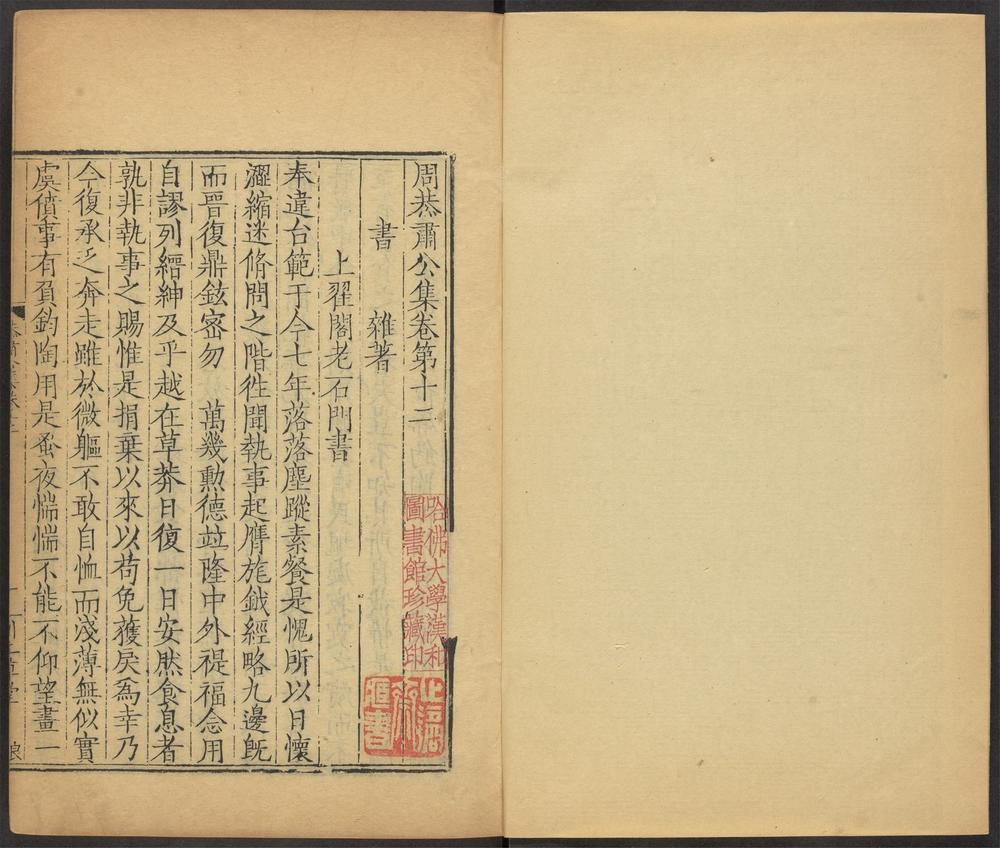 周恭肅公集卷第十二
書　雜著
上翟閣老石門書
奉違台範于今七年落落塵蹤素餐是愧所以日懷
澀縮迷脩問之階徃聞執事起膺旄鉞經略九邊旣
而晋復鼎鉉密勿　萬幾勲德竝隆中外禔福念用
自謬列縉紳及乎越在草莽日復一日安肰食息者
孰非執事之賜惟是捐棄以來以苟免蒦戾爲幸乃
今復承乏奔走雖於微軀不敢自恤而淺薄無似實
虞僨事有負鈞陶用是蚤夜惴惴不能不仰望畫一
哈佛大學漢和
圖書館珍藏印